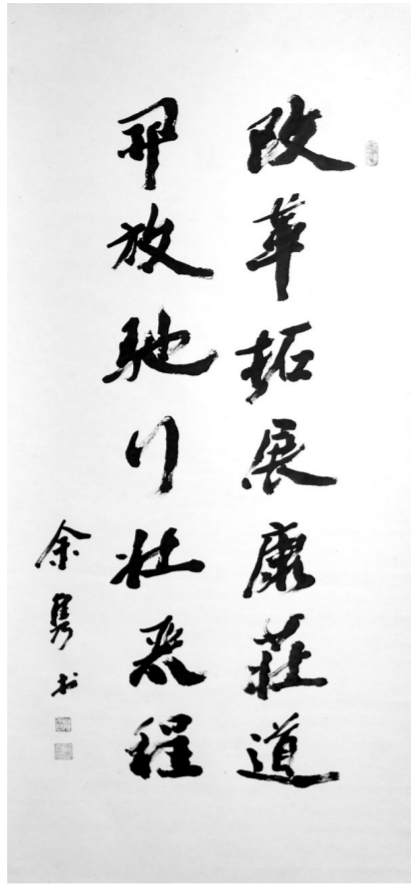 改革拓展康莊道
開放馳行壯麗程
余雋书